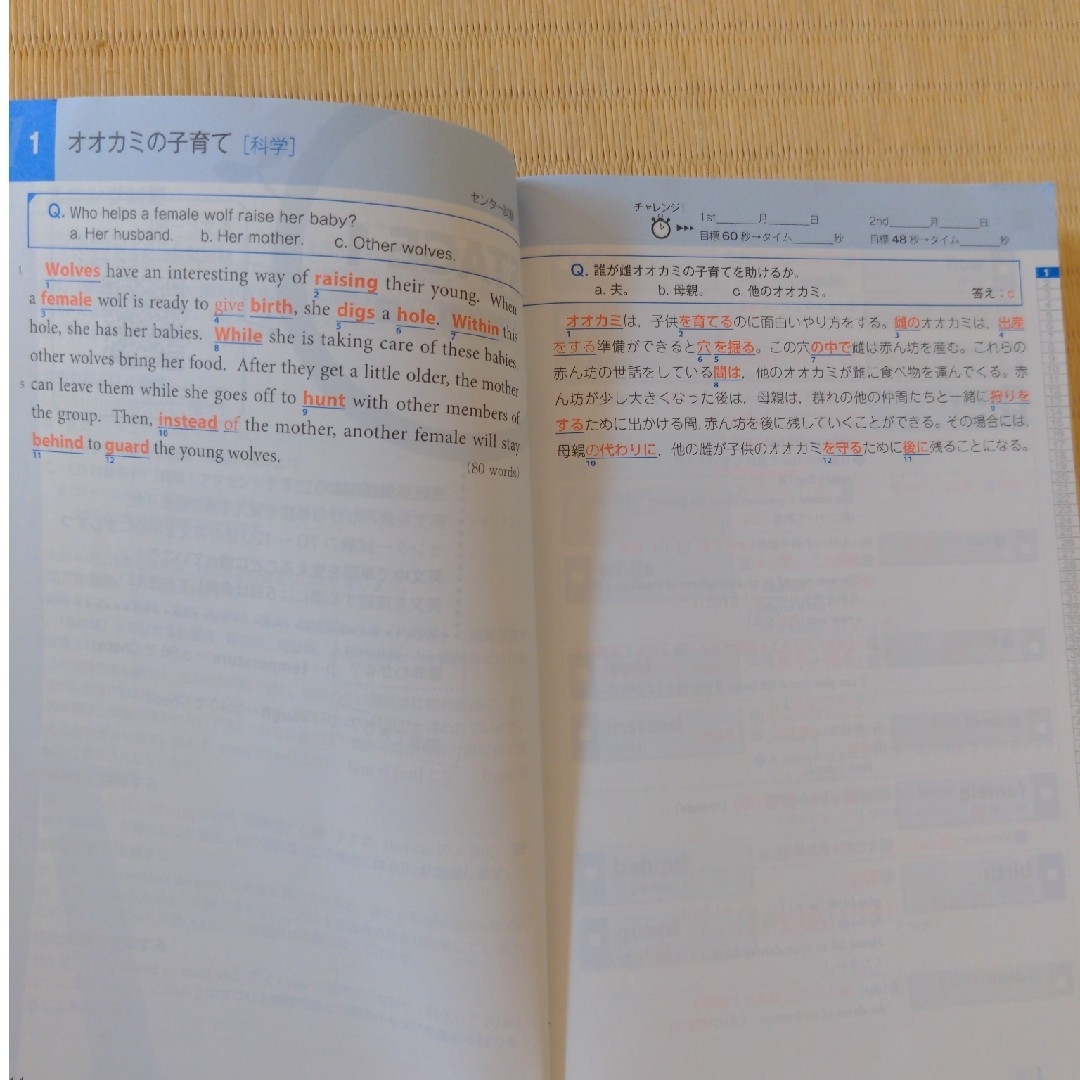 1 オオカミの子育て [科学]
センター試験
Q. Who helps a female wolf raise her baby?
a. Her husband. b. Her mother. c. Other wolves.
1 Wolves have an interesting way of raising their young. When
1 2
a female wolf is ready to give birth, she digs a hole. Within this
3 4 5 6 7
hole, she has her babies. While she is taking care of these babies,
8
other wolves bring her food. After they get a little older, the mother
5 can leave them while she goes off to hunt with other members of
9
the group. Then, instead of the mother, another female will stay
10
behind to guard the young wolves.
11 12
(80 words)
チャレンジ!
1st 月 日 2nd 月 日
目標60秒→タイム 秒 目標48秒→タイム 秒
Q. 誰が雌オオカミの子育てを助けるか。
a. 夫。 b. 母親。 c. 他のオオカミ。 答え:c
1
オオカミは、子供を育てるのに面白いやり方をする。雌のオオカミは、出産
1 2 3 4
をする準備ができると穴を掘る。この穴の中で雌は赤ん坊を産む。これらの
6 5 7
赤ん坊の世話をしている間は、他のオオカミが雌に食べ物を運んでくる。赤
8
ん坊が少し大きくなった後は、母親は、群れの他の仲間たちと一緒に狩りを
9
するために出かける間、赤ん坊を後に残していくことができる。その場合には、
母親の代わりに、他の雌が子供のオオカミを守るために後に残ることになる。
10 12 11